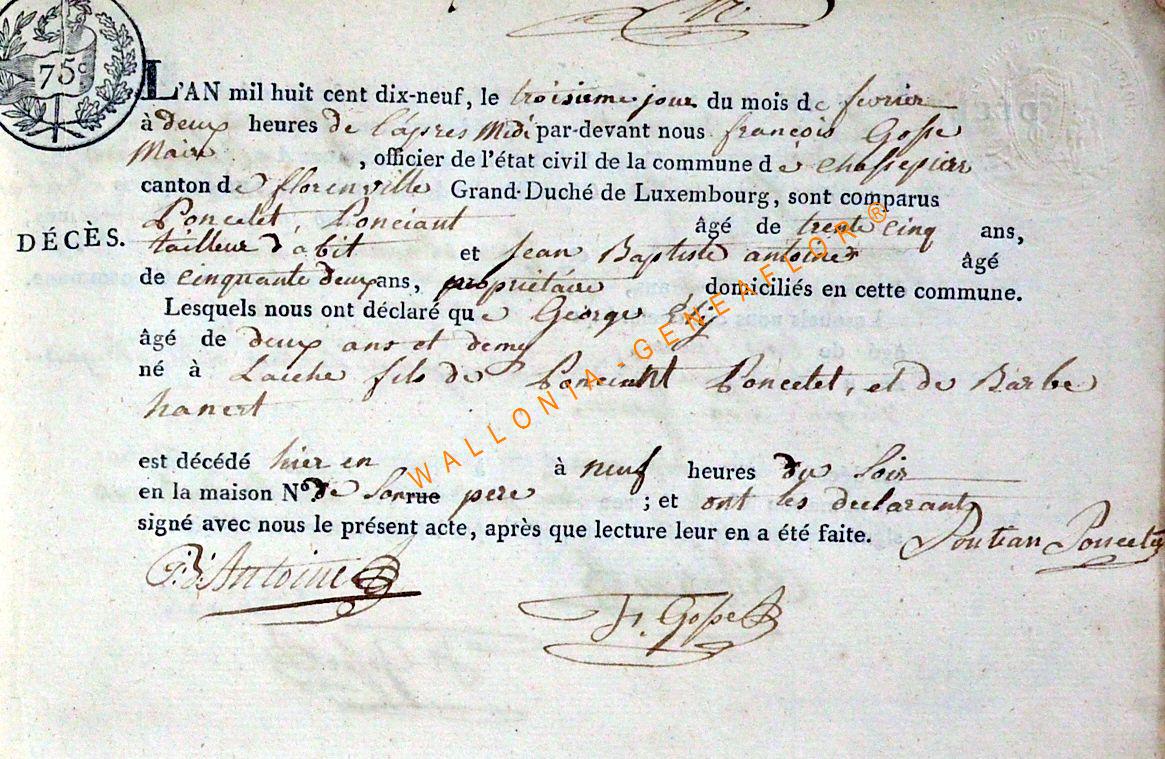 75 c
L'AN mil huit cent dix-neuf, le troisieme jour du mois de fevrier
à deux heures de l'apres Midi par-devant nous françois Gosse
Maire, officier de l'état civil de la commune de chassepierre
canton de florenville Grand-Duché de Luxembourg, sont comparus
Poncelet, Ponciant âgé de trente cinq ans,
DÉCÈS.
tailleur d'abit et Jean Baptiste antoine âgé
de cinquante deux ans, propriétaire, domiciliés en cette commune.
Lesquels nous ont déclaré que George
âgé de deux ans et demy
né à Laiche fils de Ponciant Poncelet, et de Barbe
hanert
est décédé hier en à neuf heures du Soir
en la maison N° de Son rue pere ; et ont les declarant
signé avec nous le présent acte, après que lecture leur en a été faite. Pontian Poncelet
J. B. Antoine
F. Gosse
WALLONIA-GENEAFLOR®